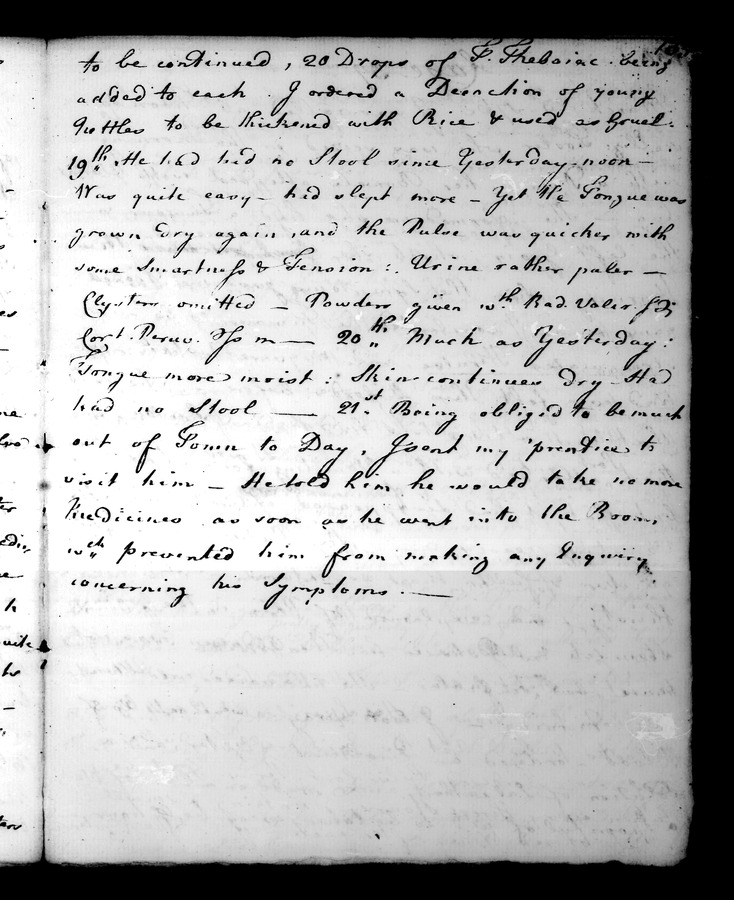 to be continued, 20 Drops of T. Thebaiac. being
added to each. I ordered a Decoction of young
Nettles to be thickened with Rice & used as Gruel.
19th. He had had no Stool since Yesterday-noon —
Was quite easy — had slept more — Yet the Tongue was
grown Dry again, and the Pulse was quicker with
some Smartness & Tension: Urine rather paler —
Clysters omitted — Powders given wth. Rad. Valer.
Cort. Peruv. m — 20th. Much as Yesterday:
Tongue more moist: Skin continues dry. Had
had no Stool — 21st. Being obliged to be much
out of Town to Day, I sent my 'prentice to
visit him — He told him he would take no more
Medicines as soon as he went into the Room,
wch. prevented him from making any Enquiry
concerning his Symptoms. —